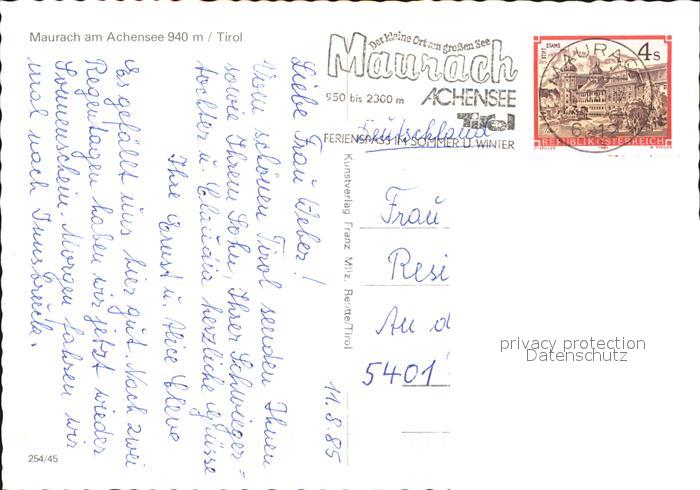 Maurach am Achensee 940 m / Tirol
Liebe Frau Weber!
Vom schönen Tirol senden Ihnen
sowie Ihrem Sohn, Ihrer Schwieger=
tochter u. Claudia herzliche Grüsse
Ihre Ernst u. Alice
Es gefällt uns hier gut. Nach zwei
Regentagen haben wir jetzt wieder
Sonnenschein. Morgen fahren wir
mal nach Innsbruck.
11.8.85
254/45
Kunstverlag Franz Milz, Reutte/Tirol
Der kleine Ort am großen See
Maurach
950 bis 2300 m ACHENSEE
Tirol
FERIENSPASS IM SOMMER U. WINTER
MAURACH
4 S
STIFT STAMS
REPUBLIK ÖSTERREICH
Deutschland
Frau
Resi
An d
5401
privacy protection
Datenschutz